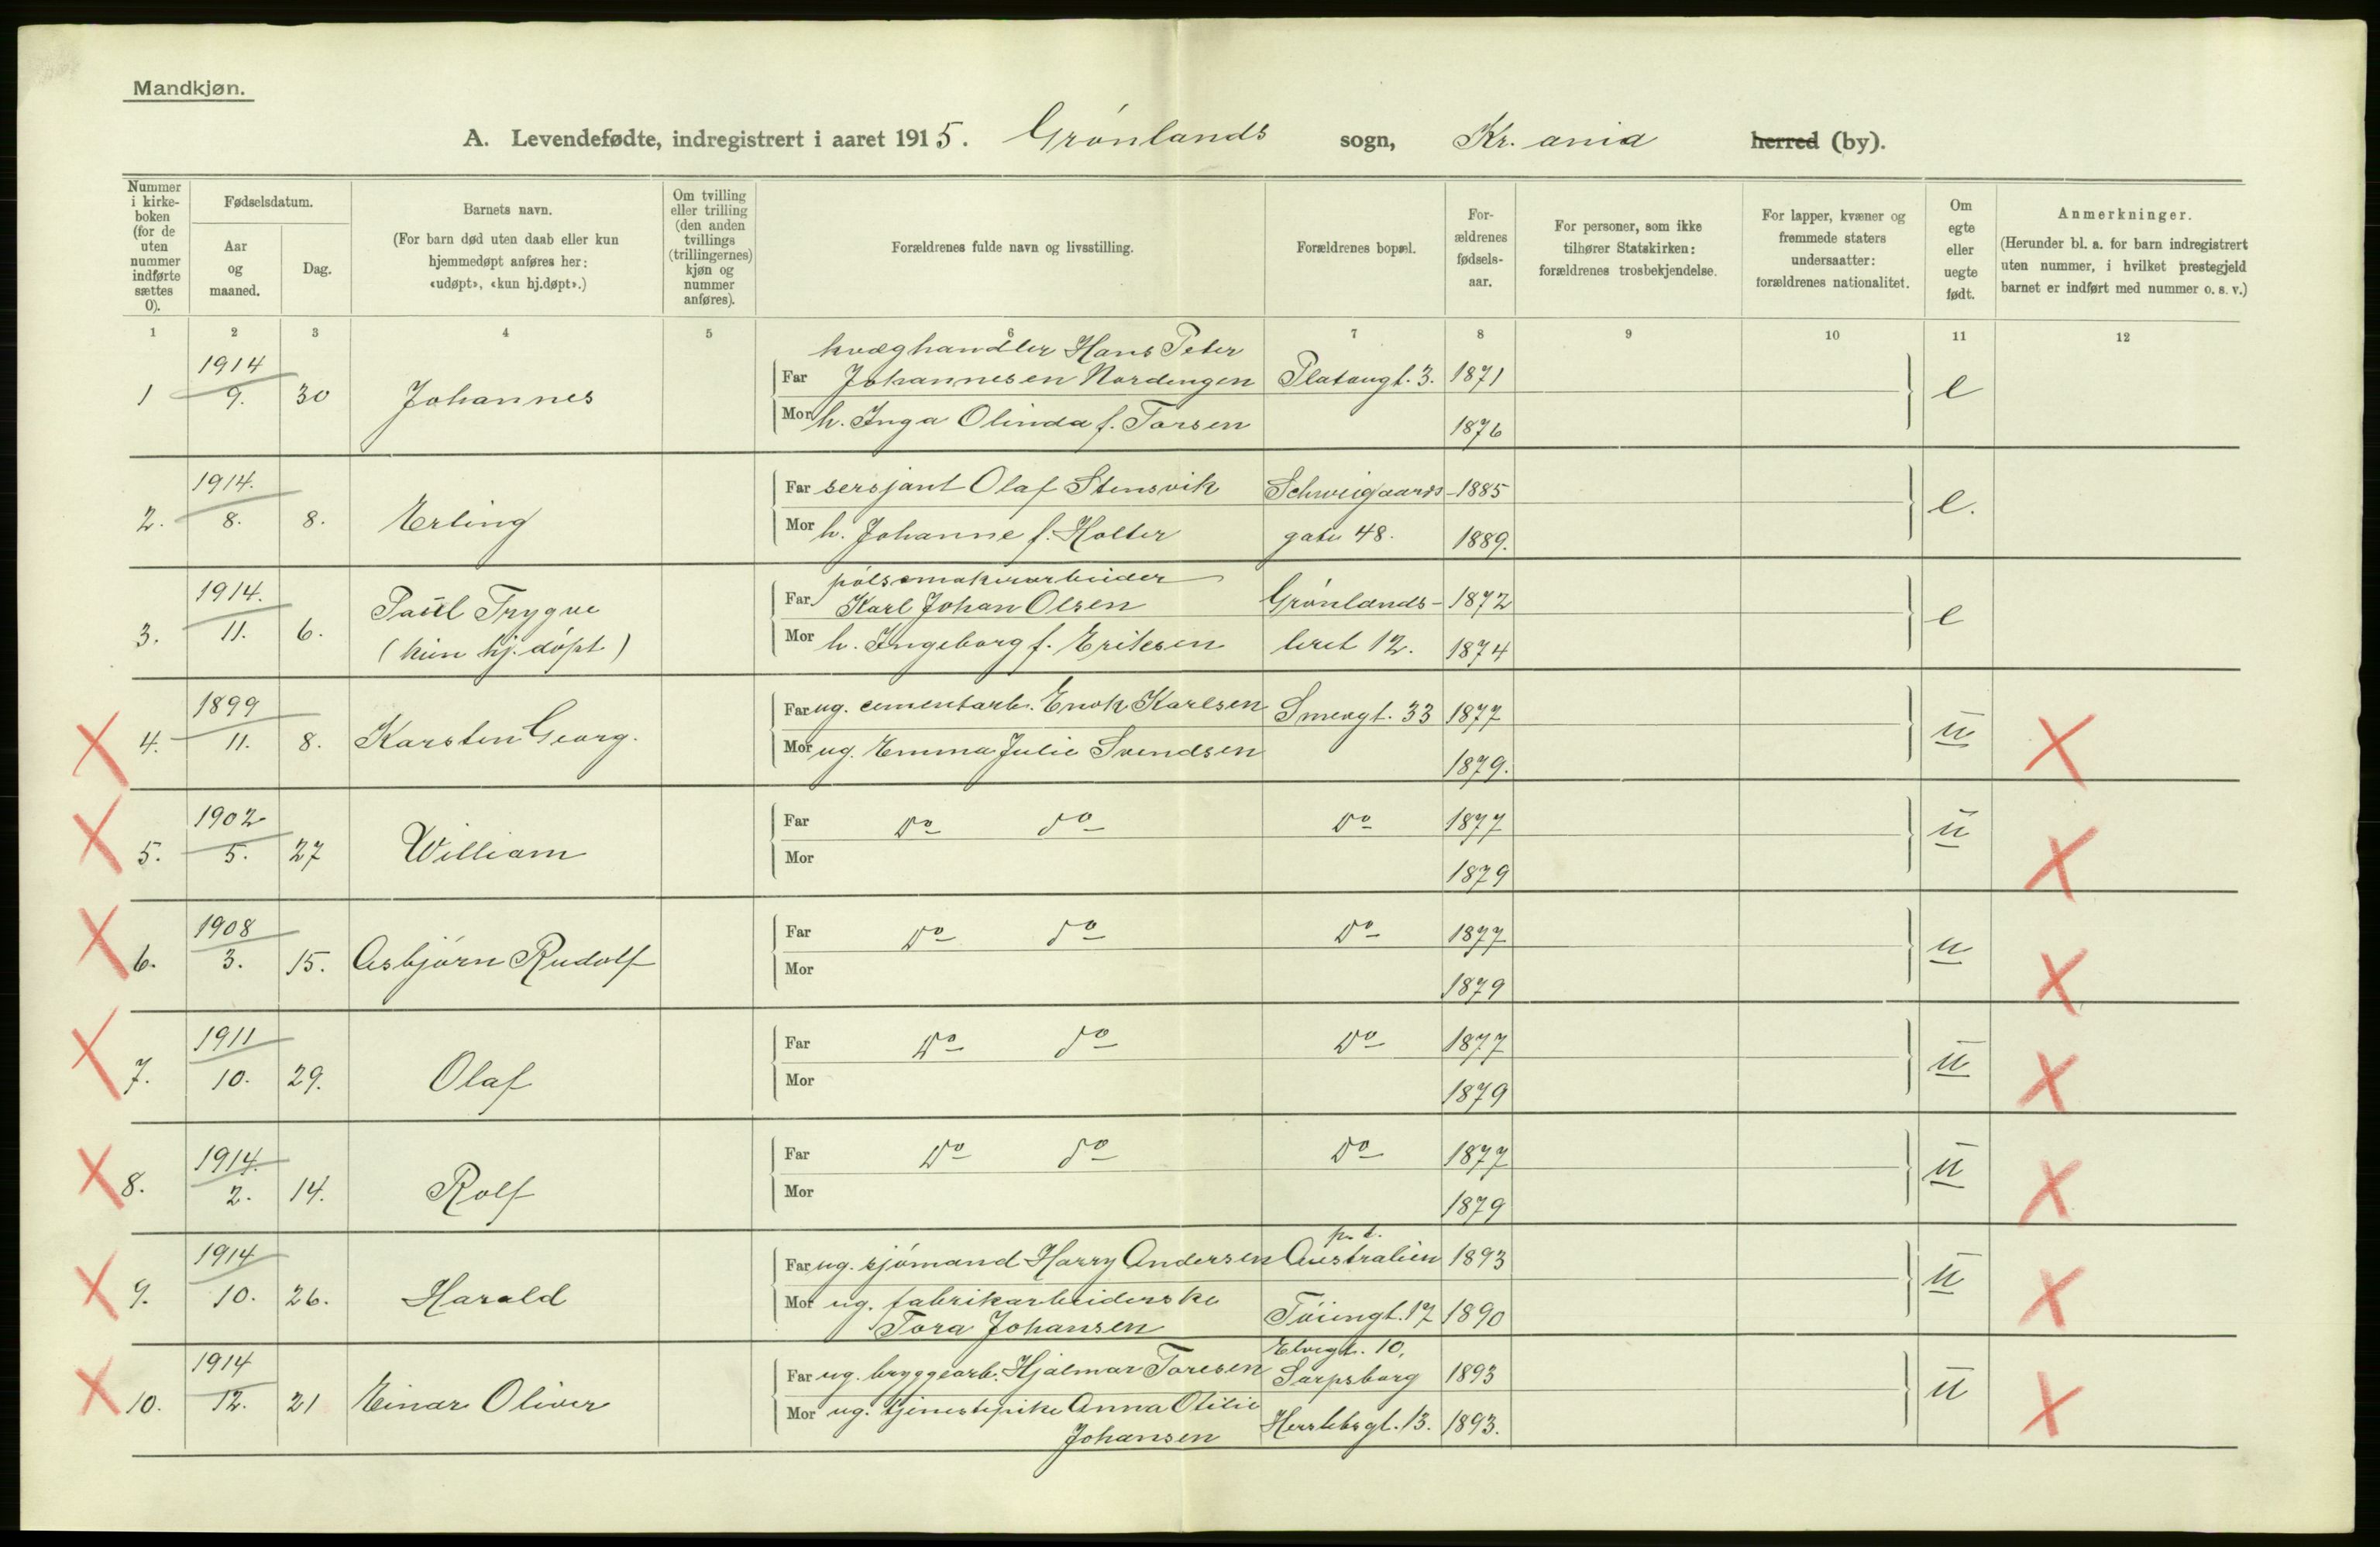 Mandkjøn.
A. Levendefødte, indregistrert i aaret 1915. Grønlands sogn, Kr. ania herred (by).
Nummer i kirke-boken (for de uten nummer indførte sættes 0).
Fødselsdatum.
Aar og maaned.
Dag.
Barnets navn.
(For barn død uten daab eller kun hjemmedøpt anføres her: «udøpt», «kun hj.døpt».)
Om tvilling eller trilling (den anden tvillings (trillingernes) kjøn og nummer anføres).
Forældrenes fulde navn og livsstilling.
Forældrenes bopæl.
For-ældrenes fødsels-aar.
For personer, som ikke tilhører Statskirken: forældrenes trosbekjendelse.
For lapper, kvæner og fremmede staters undersaatter: forældrenes nationalitet.
Om egte eller uegte født.
Anmerkninger.
(Herunder bl. a. for barn indregistrert uten nummer, i hvilket prestegjeld barnet er indført med nummer o. s. v.)
1 2 3 4 5 6 7 8 9 10 11 12
kvæghandler Hans Peter
1 1914 9. 30 Johannes Far Johannesen Nordengen Platougt. 3. 1871 e
Mor h. Inga Olinda f. Torsen 1876
2. 1914. 8. 8. Erling Far sersjant Olaf Stensvik Schweigaards- 1885 e.
Mor h. Johanne f. Holter gate 48. 1889.
pølsemakerarbeider
3. 1914. 11. 6. Paul Trygve Far Karl Johan Olsen Grønlands- 1872 e
(kun hj. døpt) Mor h. Ingeborg f. Eriksen leret 12. 1874
4. 1899 11. 8. Karsten Georg. Far ug. cementarb. Enok Karlsen Smeugt. 33 1877 u
Mor ug. Emma Julie Svendsen 1879.
5. 1902 5. 27 William Far Do do Do 1877 u
Mor 1879
6. 1908 3. 15. Asbjørn Rudolf Far Do do Do 1877 u
Mor 1879
7. 1911 10. 29. Olaf Far Do do Do 1877 u
Mor 1879
8. 1914. 2. 14. Rolf Far Do do Do 1877 u
Mor 1879
p. t.
9. 1914 10. 26. Harald Far ug. sjømand Harry Andersen Australien 1893 u
Mor ug. fabrikarbeiderske
Tora Johansen Tøiengt. 17 1890
Elvegt. 10,
10. 1914 12. 21 Einar Oliver Far ug. bryggearb. Hjalmar Toresen Sarpsborg 1893 u
Mor ug. tjenestepike Anna Otilie
Johansen Herslebsgt. 13. 1893.